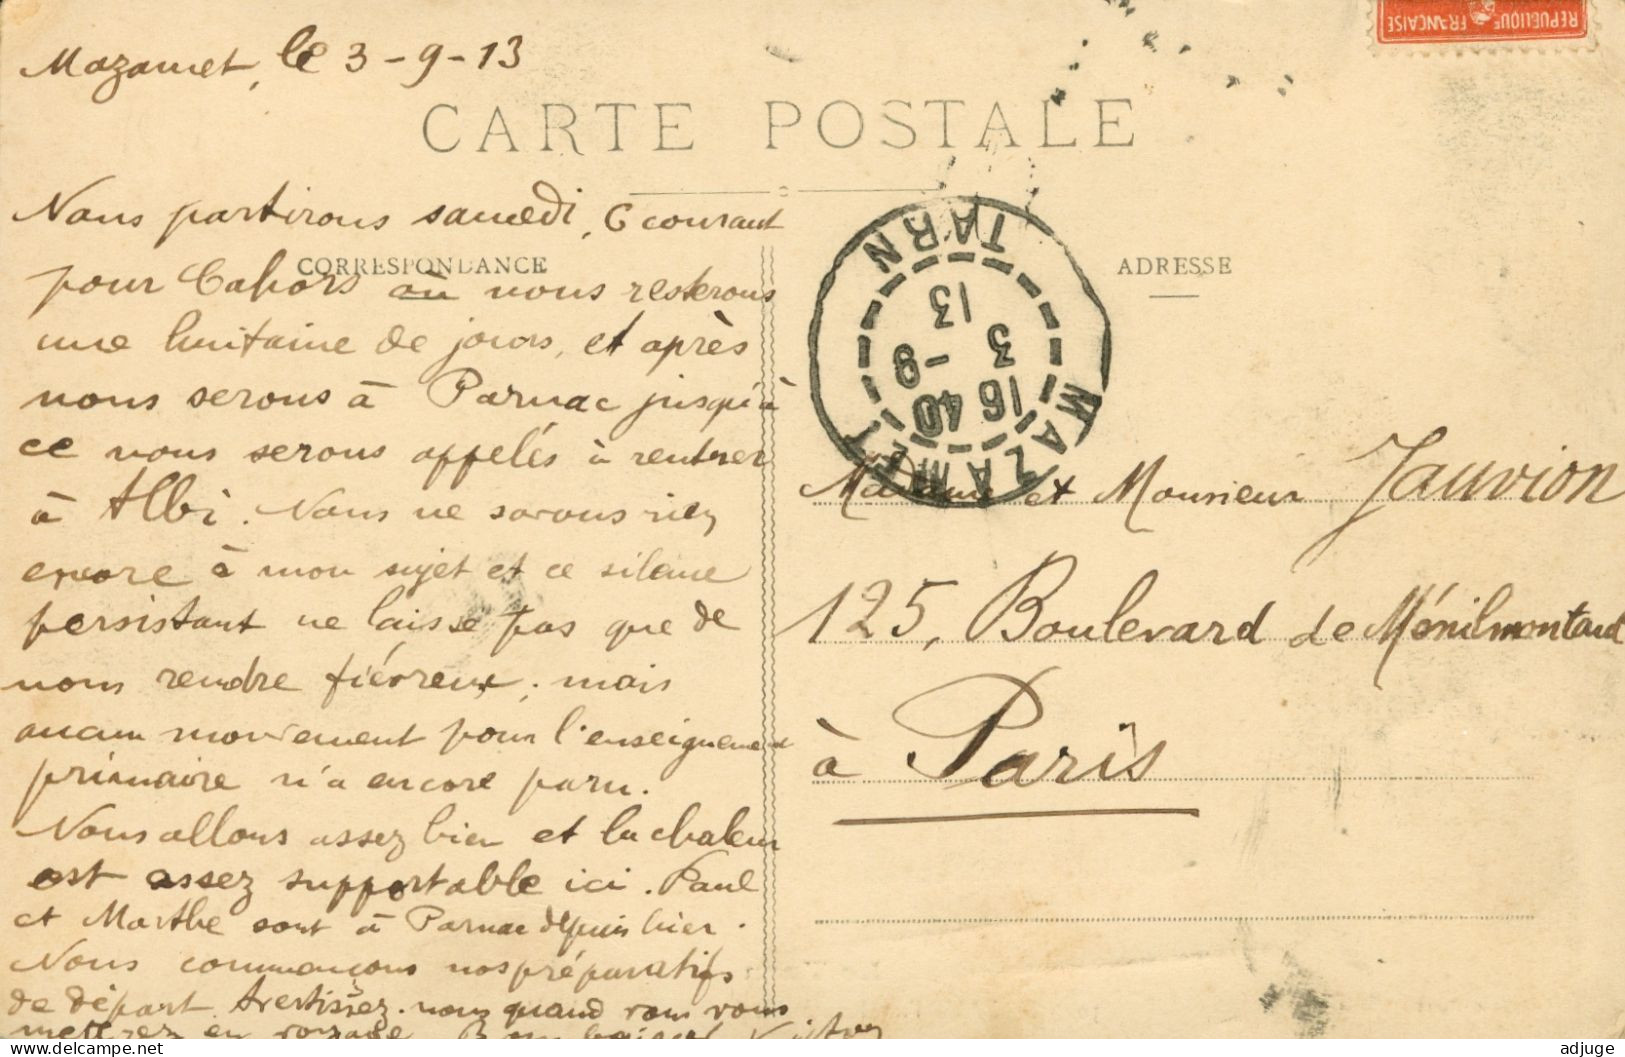 REPUBLIQUE FRANÇAISE
Mazamet, le 3-9-13
CARTE POSTALE
Nous partirons samedi, 6 courant
CORRESPONDANCE
pour Cahors où nous resterons
une huitaine de jours, et après
nous serons à Parnac jusqu'à
ce nous serons appelés à rentrer
à Albi. Nous ne savons rien
encore à mon sujet et ce silence
persistant ne laisse pas que de
nous rendre fiévreux ; mais
aucun mouvement pour l'enseignement
primaire n'a encore paru.
Nous allons assez bien et la chaleur
est assez supportable ici. Paul
et Marthe sont à Parnac depuis hier.
Nous commençons nos préparatifs
de départ. Avertissez-nous quand vous vous
mettrez en voyage. Bons baisers
MAZAMET
TARN
16 40
3 - 9
13
ADRESSE
Madame et Monsieur Jauvion
125, Boulevard de Ménilmontant
à Paris
adjuge